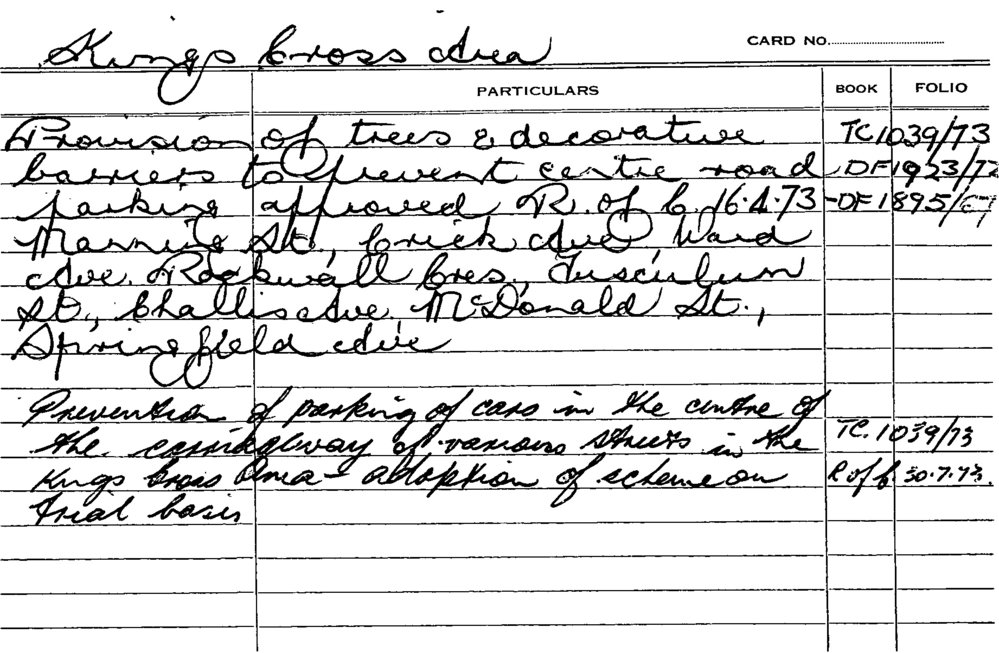 Kings Cross Area
CARD No.
PARTICULARS BOOK FOLIO
Provision of trees & decorative TC 1039/73
barriers to prevent centre road DF 1923/72
parking approved R. of C. 16.4.73 -DF 1895/67
Manning St., Crick Ave, Ward
Ave. Rockwall Cres, Tusculum
St., Challis Ave, McDonald St.,
Springfield Ave
Prevention of parking of cars in the centre of
the carriageway of various streets in the TC. 1039/73
Kings Cross Area - adoption of scheme on R of C 30.7.73.
trial basis